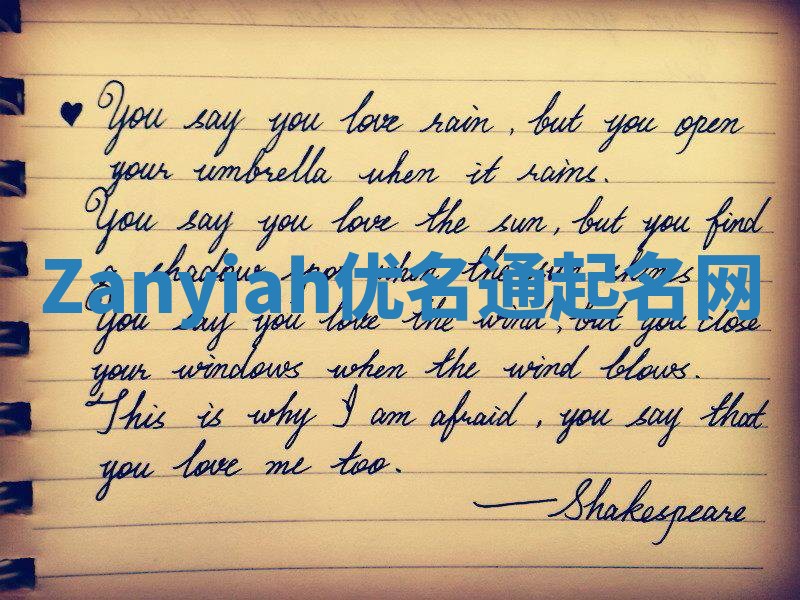 You say you love rain, but you open
your umbrella when it rains.
You say you love the sun, but you find
a shadow spot when the sun shines
Zanyiah优名通起名网
You say you love the wind, but you close
your windows when the wind blows.
This is why I am afraid, you say that
you love me too.
—Shakespeare